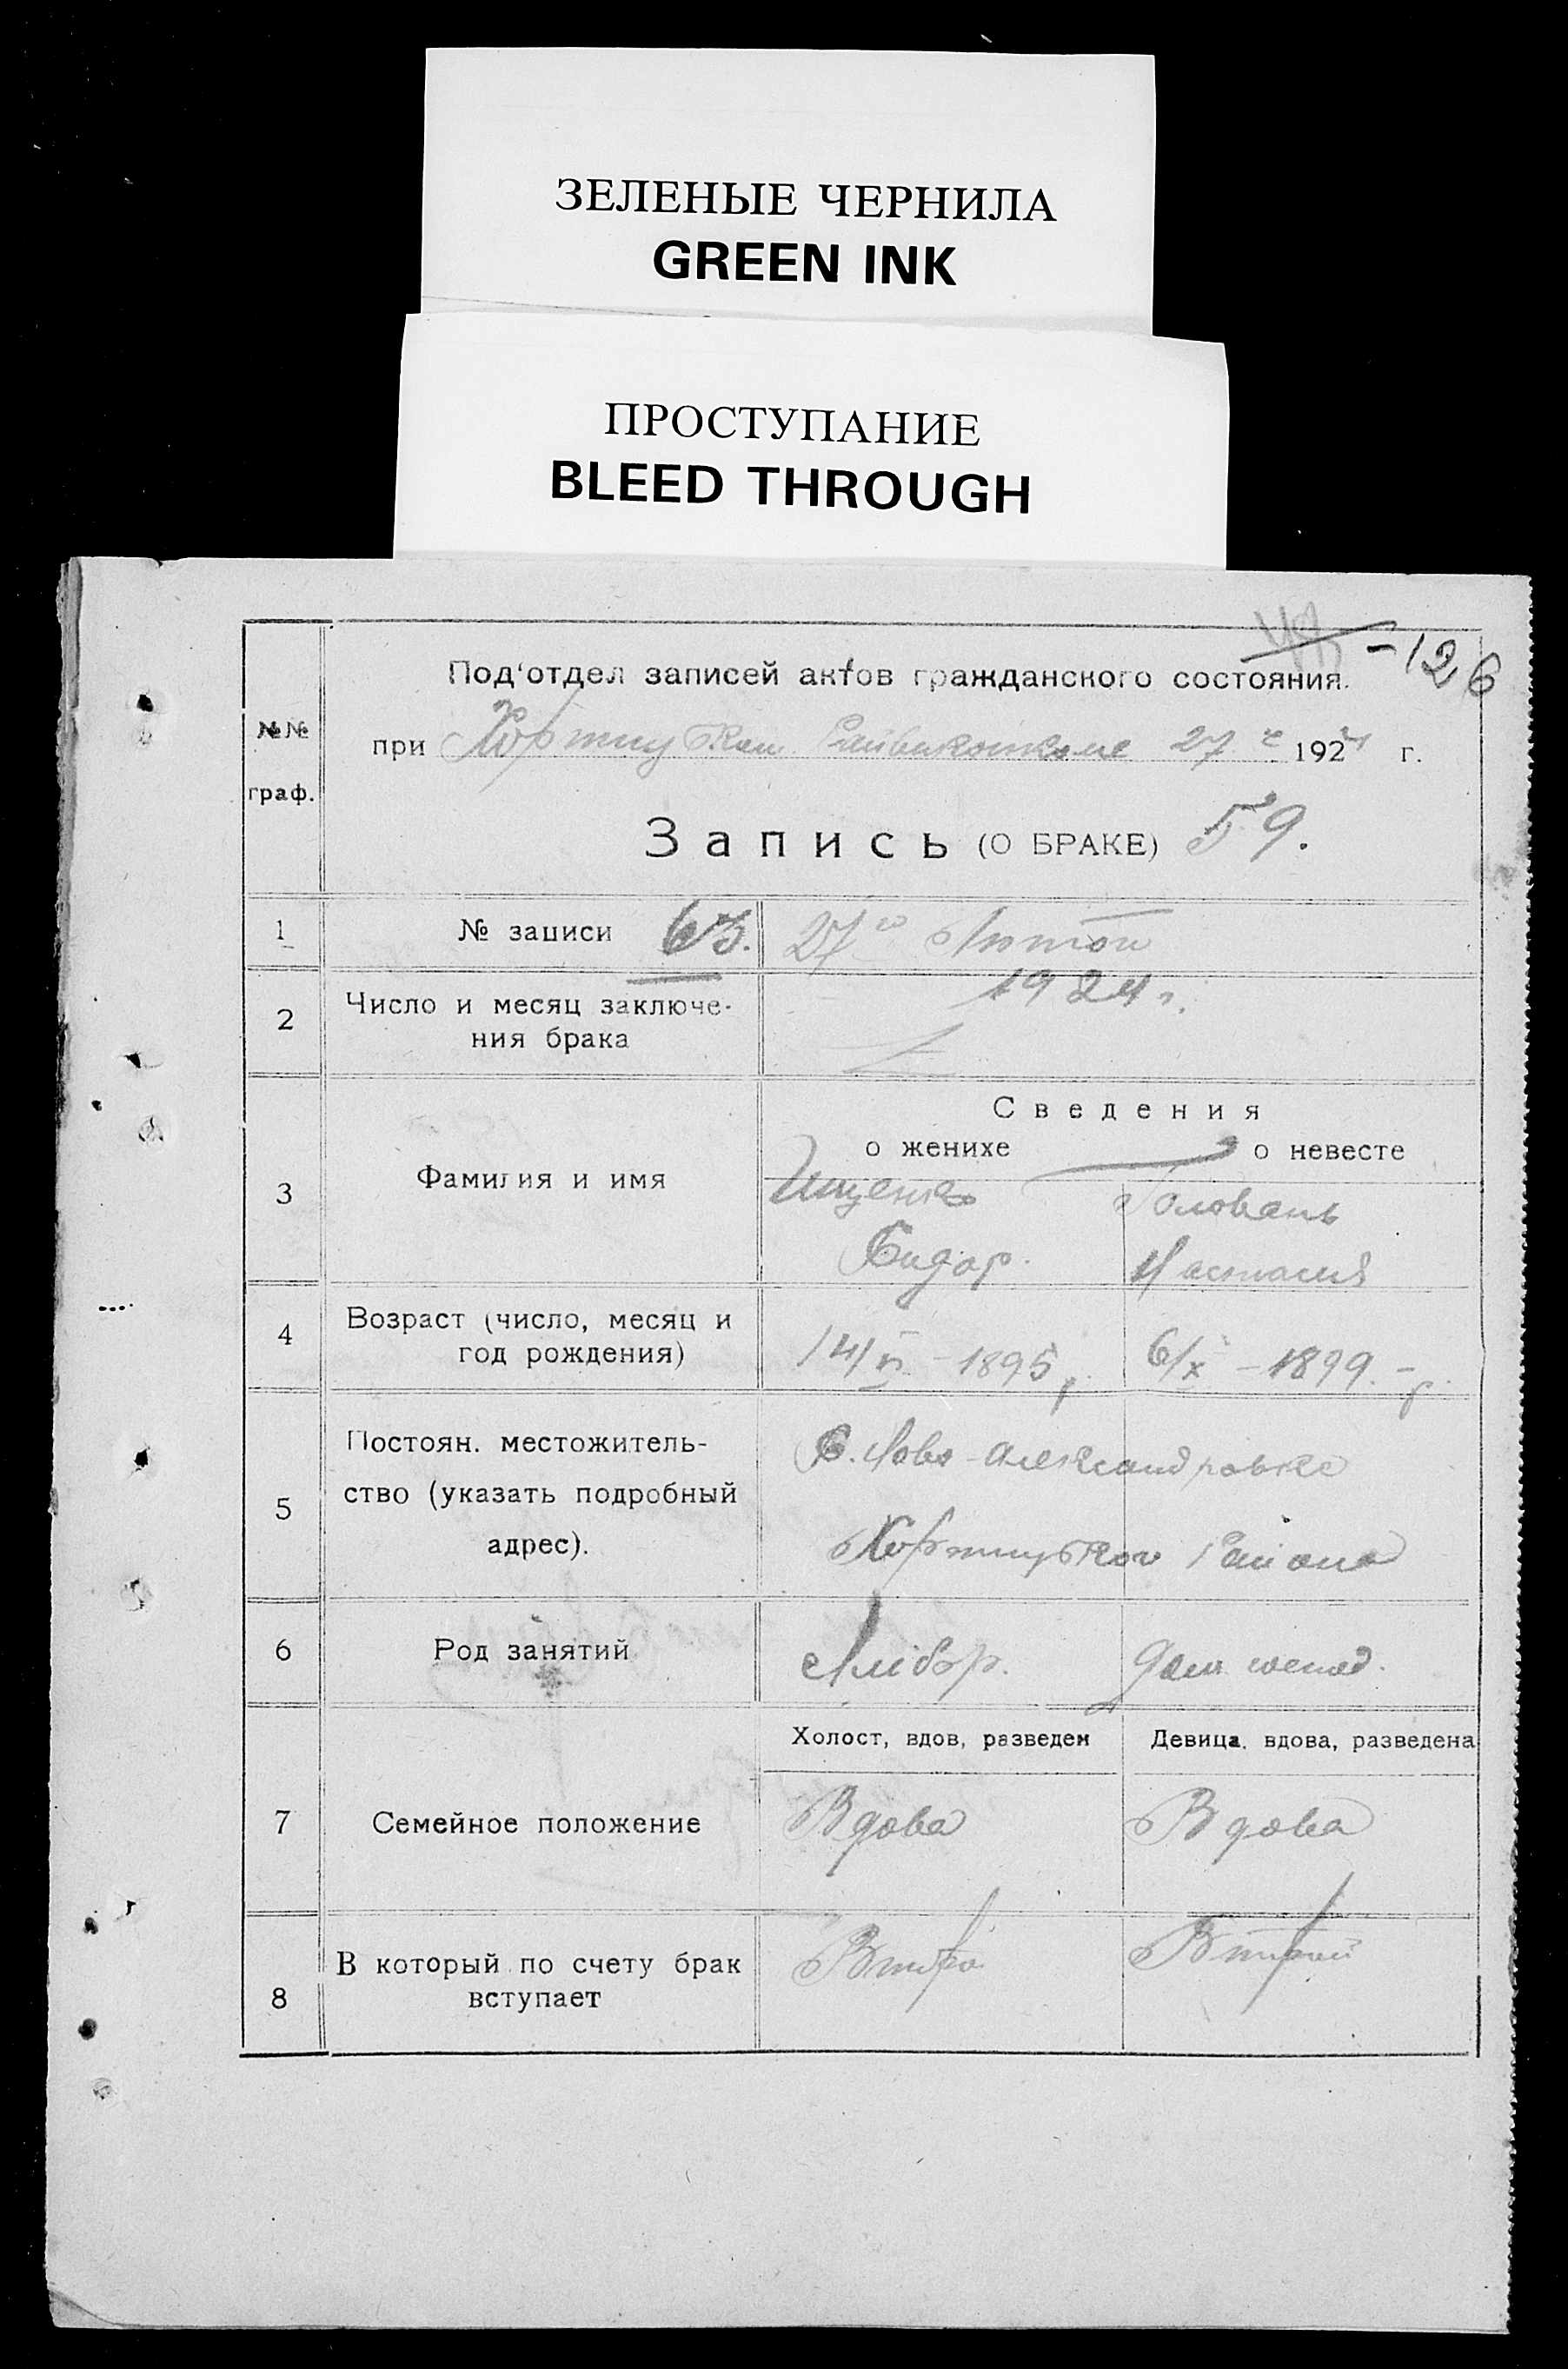 ЗЕЛЕНЫЕ ЧЕРНИЛА
GREEN INK
ПРОСТУПАНИЕ
BLEED THROUGH
-126
Под'отдел записей актов гражданского состояния.
№№ граф.
при Хортицком Райвикомкоме 27 1924 г.
Запись (О БРАКЕ) 59.
1 № записи 63. 27го Лютого
1924 г.
2 Число и месяц заключе-
ния брака
Сведения
о женихе о невесте
3 Фамилия и имя Ищенко Головань
Сидор. Настасия
4 Возраст (число, месяц и
год рождения) 14/VI - 1895 р. 6/X - 1899. - р.
5 Постоян. местожитель-
ство (указать подробный
адрес).
С. Ново-Александровке
Хортицкого Району
6 Род занятий Хлібор. Дом.
Холост, вдов, разведен Девица, вдова, разведена
7 Семейное положение Вдова Вдова
8 В который по счету брак
вступает